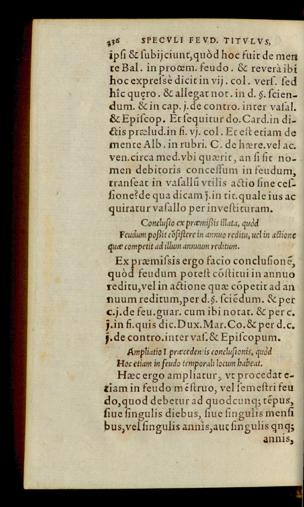 236 SPECVLI FEVD. TITVLVS,
ipsi & subijciunt, quòd hoc fuit de men
te Bal. in proœm. feudo. & reverà ibi
hoc expressè dicit in vij. col. vers. sed
hîc quero. & allegat not. in d. §. scien-
dum. & in cap. j. de contro. inter vasal.
& Episcop. Et sequitur do. Card. in di-
ctis prælud. in fi. vj. col. Et est etiam de
mente Alb. in rubri. C. de hære. vel ac.
ven. circa med. vbi quærit, an si sit no-
men debitoris concessum in feudum,
transeat in vasallũ vtilis actio sine ces-
sione? de qua dicam j. in tit. quale ius ac
quiratur vasallo per inuestituram.
Conclusio ex præmissis illata, quòd
Feudum possit cõsistere in annuo reditu, uel in actione
quæ competit ad illum annuum reditum.
Ex præmissis ergo facio conclusionẽ,
quòd feudum potest cõstitui in annuo
reditu, vel in actione quæ cõpetit ad an
nuum reditum, per d. §. sciẽdum. & per
c. j. de feu. guar. cum ibi notat. & per c.
j. in fi. quis dic. Dux. Mar. Co. & per d. c.
j. de contro. inter vas. & Episcopum.
Ampliatio I præcedentis conclusionis, quòd
Hoc etiam in feudo temporali locum habeat.
Hæc ergo ampliatur, vt procedat e-
tiam in feudo mẽstruo, vel semestri feu
do, quod debetur ad quodcunq; tẽpus,
siue singulis diebus, siue singulis mensi
bus, vel singulis annis, aut singulis qnq;
annis,